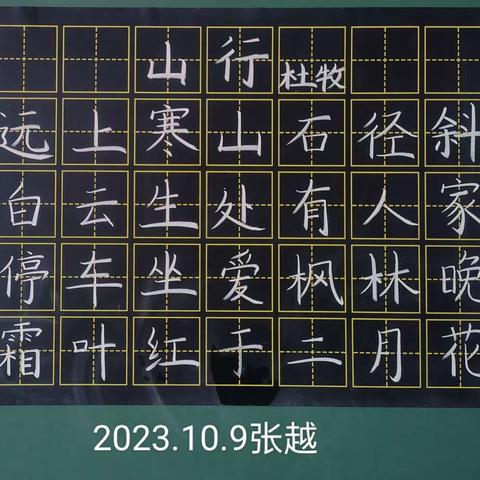 山行 杜牧
远上寒山石径斜
白云生处有人家
停车坐爱枫林晚
霜叶红于二月花
2023.10.9张越